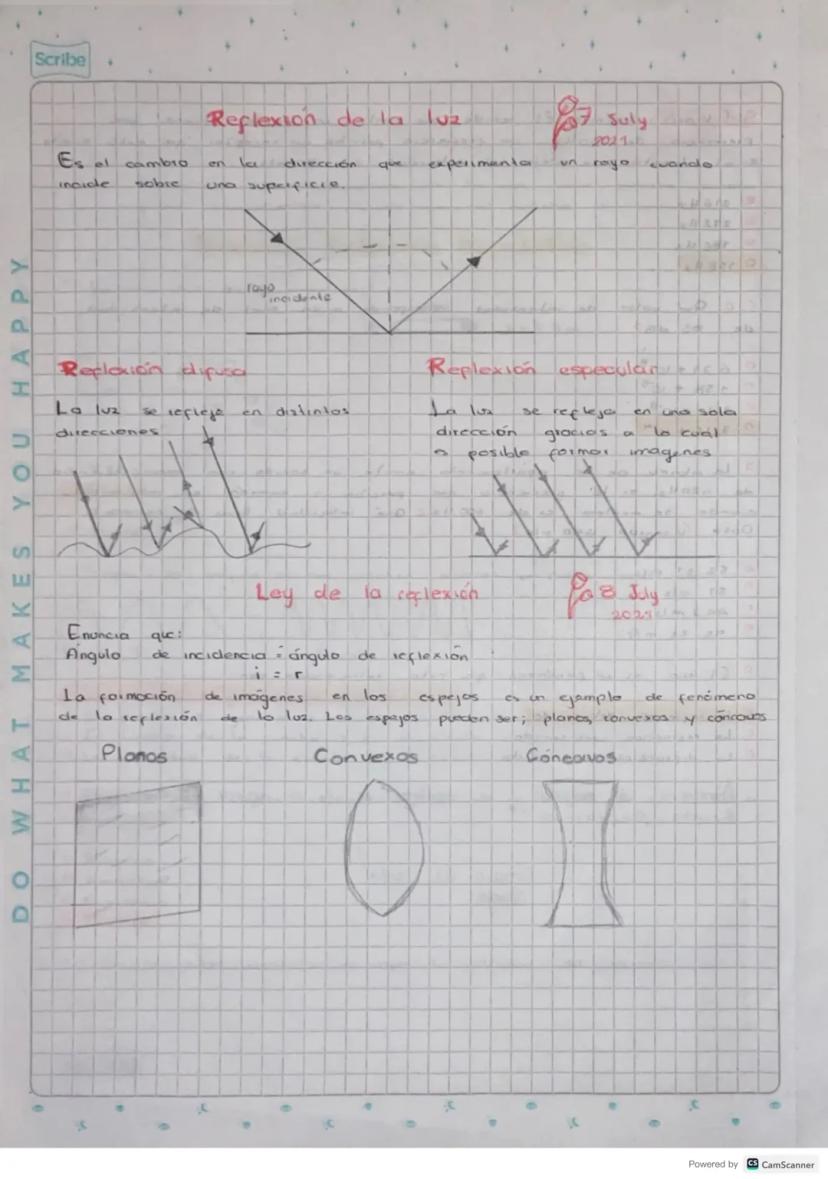 Scribe
Reflexión de la luz
7 July
2021
Es el cambio en la dirección que experimenta un rayo cuando
incide sobre una superficie.
rayo
incidente
Reflexión difusa
La luz se refleja en distintos
direcciones
Reflexión especular
La luz se refleja en una sola
dirección gracias a lo cual
es posible formar imagenes
Ley de la reflexión
8 July
2021
Enuncia que:
Ángulo de incidencia = ángulo de reflexión
i = r
La formación de imágenes en los espejos es un ejemplo de fenómeno
de la reflexión de la luz. Los espejos pueden ser; planos, convexos y cóncavos
Planos
Convexos
Cóncavos
DO WHAT MAKES YOU HAPPY
Powered by CS CamScanner